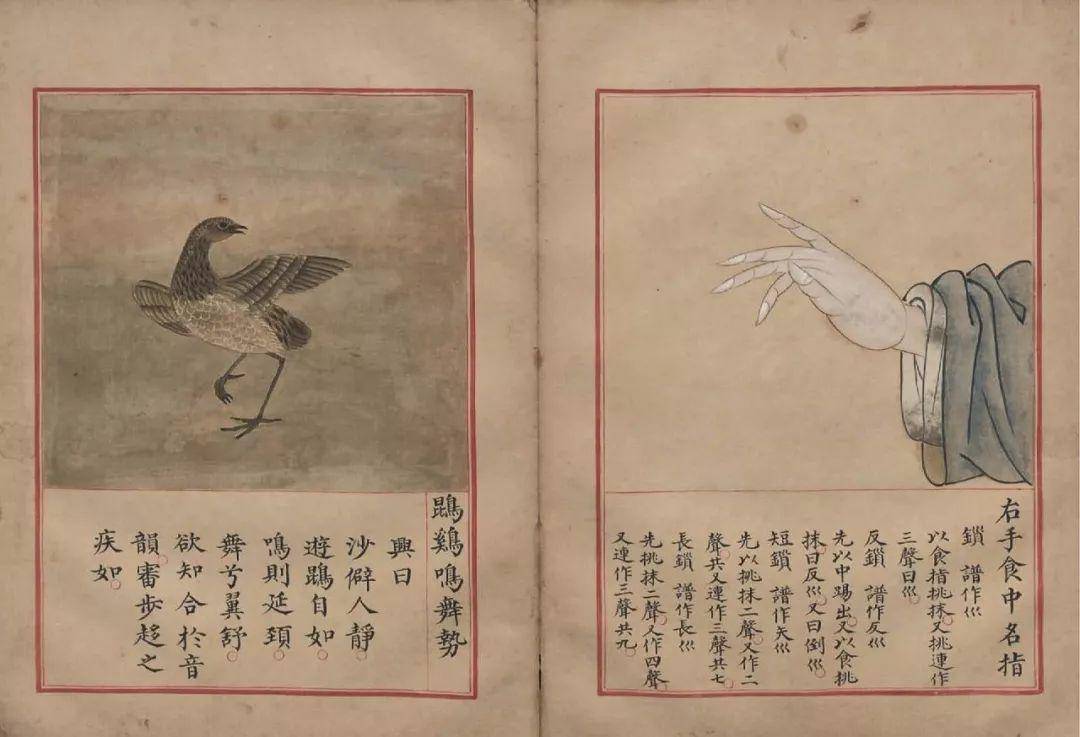 右手食中名指
鎖 譜作巛
以食指挑抹又挑連作
三聲曰巛
反鎖 譜作反巛
先以中踢出又以食挑
抹曰反巛又曰倒巛
短鎖 譜作矢巛
先以挑抹二聲又作二
聲共又連作三聲共七
長鎖 譜作長巛
先挑抹二聲又作四聲
又連作三聲共九
鵾鷄鳴舞勢
興曰
沙僻人靜
遊鵾自如
鳴則延頸
舞兮翼舒
欲知合於音
韻審步趍之
疾如